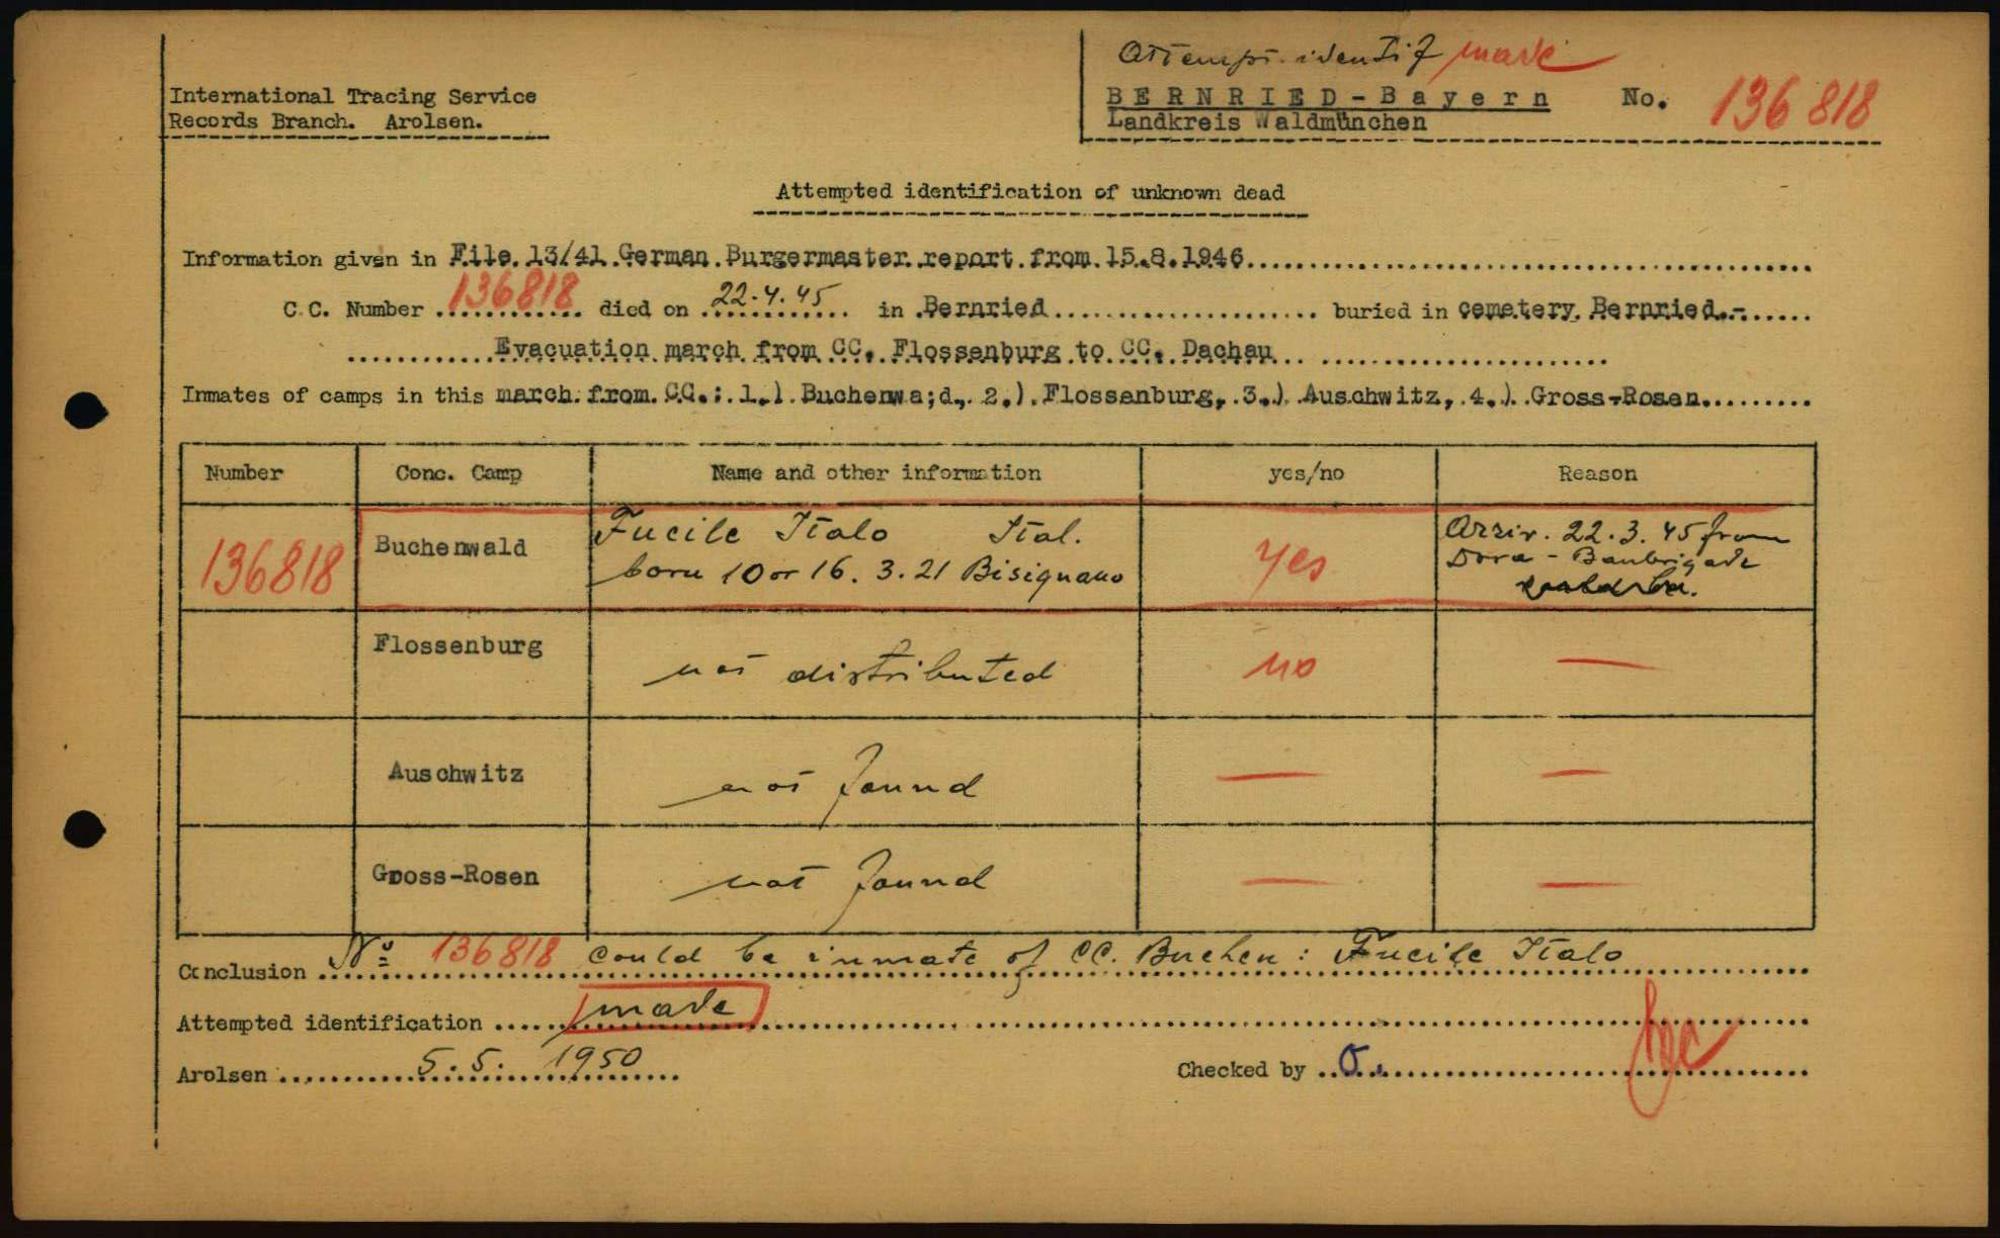 Attempt. identif made
International Tracing Service
Records Branch. Arolsen.
BERNRIED-Bayern No. 136 818
Landkreis Waldmünchen
Attempted identification of unknown dead
Information given in File 13/41 German Burgermaster report from 15.8.1946
C.C. Number 136818 died on 22.4.45 in Bernried buried in cemetery Bernried.-
Evacuation march from CC. Flossenburg to CC. Dachau
Inmates of camps in this march from CC.: 1.) Buchenwa;d, 2.) Flossenburg, 3.) Auschwitz, 4.) Gross-Rosen
Number Conc. Camp Name and other information yes/no Reason
136818 Buchenwald Fucile Italo Ital. yes Arriv. 22.3.45 from
born 10 or 16. 3. 21 Bisignano Dora - Baubrigade
Flossenburg not distributed no —
Auschwitz not found — —
Gross-Rosen not found — —
Conclusion No 136818 could be inmate of CC. Buchen: Fucile Italo
Attempted identification made
Arolsen 5.5. 1950 Checked by